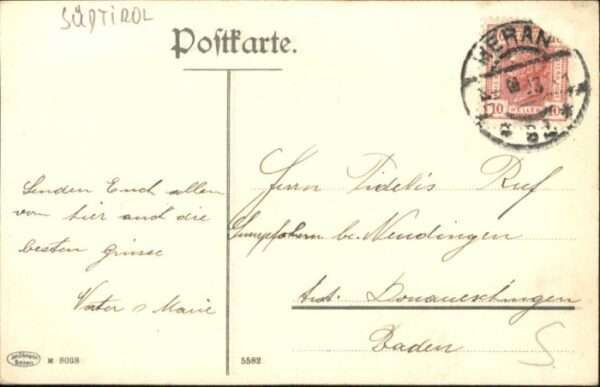 SÜDTIROL
Postkarte.
MERAN
10 HELLER 10
Senden Euch allen
von hier auch die
besten Grüsse
Vater & Marie
Herrn Fidelis Ruf
be. Neudingen
Amt. Donaueschingen
Baden
S
M 8068
5582